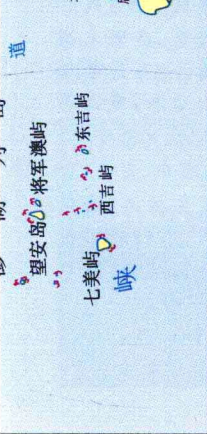 道
望安岛
将军澳屿
东吉屿
西吉屿
七美屿
峡